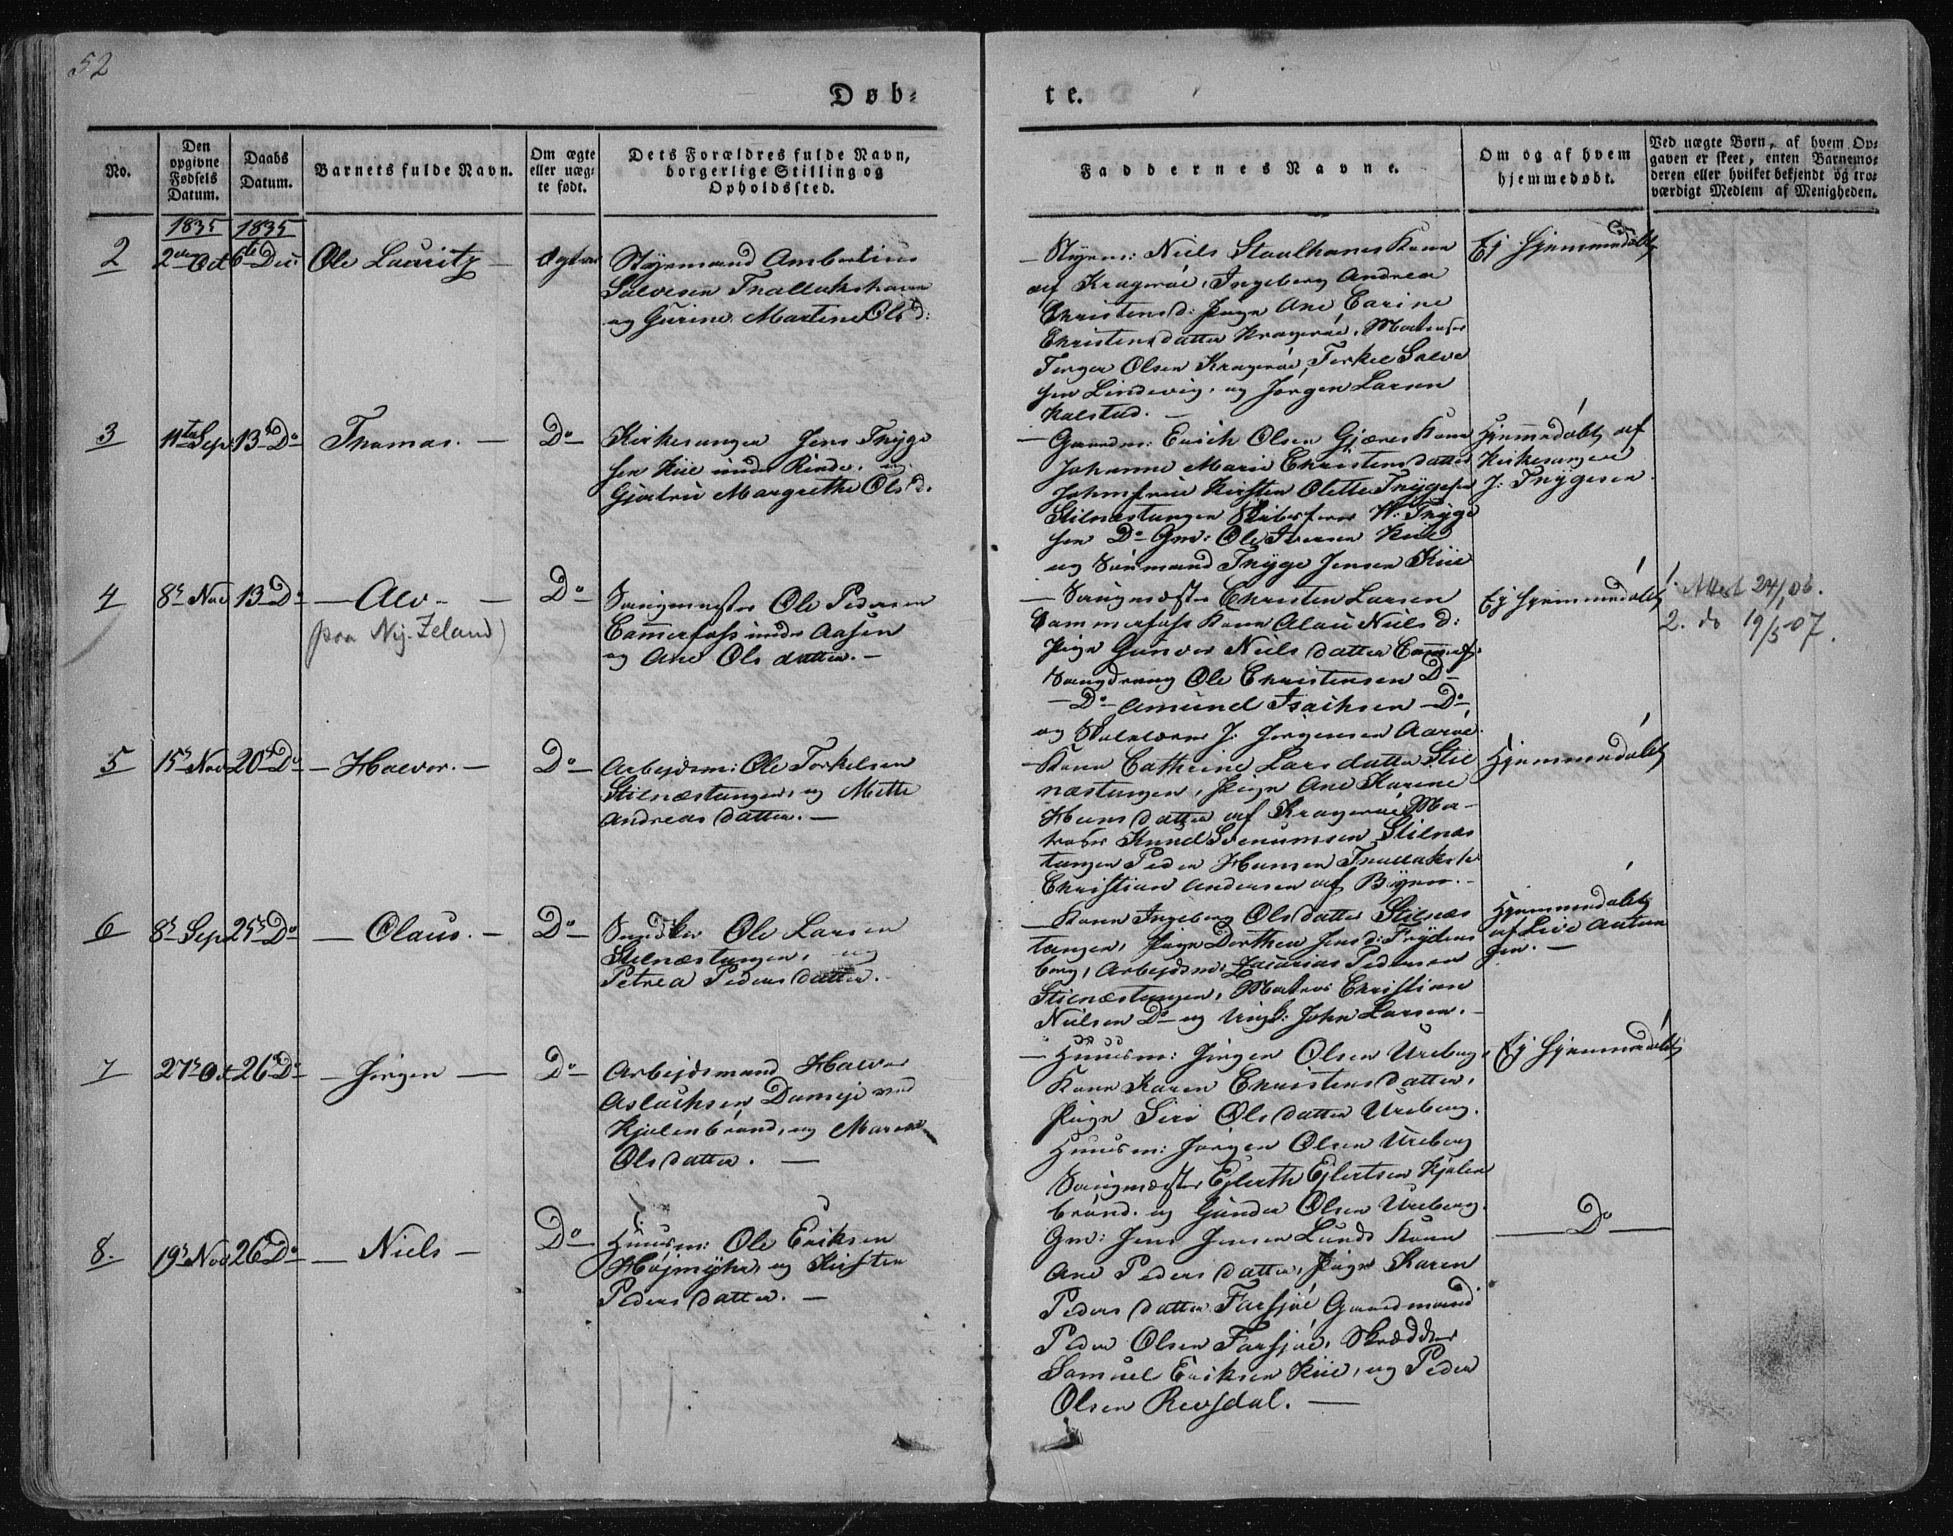 52
Døb-
te.
No.
Den opgivne Fødsels Datum.
Daabs Datum.
Barnets fulde Navn.
Om ægte eller uæg-
te født.
Dets Forældres fulde Navn,
borgerlige Stilling og
Opholdssted.
Faddernes Navne.
Om og af hvem
hjemmedøbt.
Ved uægte Børn, af hvem Op-
gaven er skeet, enten Barnemo-
deren eller hvilket bekjendt og tro-
værdigt Medlem af Menigheden.
1835 1835
2 2den Oct 6te Dec Ole Lauritz Ægte
Styrmand
Salvesen
og Gurine Martine Olsd:
Styrm: Niels Staalhanes Kone
af Kragerøe, Ingeborg Andrea
Christensd: Pige Ane Carine
Christensdatter Kragerøe, Matroser
Terger Olsen Kragerøe, Terkel Salve
sen Lindevig, og Jørgen Larsen
Kalstad.
Ej Hjemmedøbt
3 11te Sep 13de Do Thomas. — Do
Kirkesanger Jens Trÿge
sen Kiil under Rinde, og
Gjertru Margrethe Olsd.
Gaardm: Erich Olsen Gjærnes Kone
Johanne Marie Christensdatter
Johmfrue Kirsten Olette Trÿgesen
Stilnæstangen Skibsfører W: Trÿge
sen Do Gm: Ole Iversen Kiil
og Sømand Trÿge Jensen Kiil
Hjemmedøbt af
Kirkesanger
J: Trÿgesen.
4 8de Nov 13 Do — Alv — Do
(paa Nÿ-Zeland)
Saugmester Ole Pedersen
Cammerfoss under Aasen
og Ane Olsdatter. —
— Saugmester Christen Larsen
Cammerfoss Kone Alau Nielsd:
Pige Gunvor Nielsdatter Camerf:
Saugdreng Ole Christensen Do
— Do — Amund Isachsen — Do
og Skolelærer J: Jørgensen Aarøe
Ej Hjemmedøbt
1. Attest 24/1 06.
2. do 19/5 07.
5 15de Nov 20de Do — Halvor. — Do
Arbejdsm: Ole Torkelsen
Stilnæstangen, og Mette
Andreasdatter. —
Kone Cathrine Larsdatter Stil
næstangen, Pige Ane Karine
Hansdatter af Kragerøe, Ma-
troser Knud Svenumsen Stilnæs
tangen Peder Hansen
Christian Andersen af Bÿen. —
Hjemmedøbt
6 8de Sep 25de Do — Olaus. — Do
Ole Larsen
Stilnæstangen, og
Petrea Pedersdatter.
— Kone Ingeborg Olsdatter Stilnæs
tangen, Pige Dorthea Jensd: Frydens
berg, Arbejdsm: Zacarias Pedersen
Stilnæstangen, Matros Christian
Nielsen Do og Ungk: John Larsen. —
Hjemmedøbt
af Live Anton
sen. —
7 27de Oct 26de Do — Jørgen — Do
Arbejdsmand Halvor
Aslachsen Dameje ved
Kjølenbrønd, og Maren
Olsdatter. —
— Huusm: Jørgen Olsen Ureberg,
Kone Karen Christensdatter,
Pige Siri Olsdatter Ureberg.
Huusm: Jørgen Olsen Ureberg
Saugmester Ejlerth Ejlertsen Kjølen
brønd. og Gunder Olsen Ureberg.
Ej Hjemmedøbt
8. 19de Nov 26de Do — Niels — Do
Huusm: Ole Eriksen
Højmÿhr, og Kirsten
Pedersdatter. —
Gm: Jens Jensen Lunds Kone
Ane Pedersdatter, Pige Karen
Pedersdatter Farsjøe Gaardmand
Peder Olsen Farsjøe, Skrædder
Samuel Eriksen Kiil, og Peder
Olsen Revsdal. —
— Do —